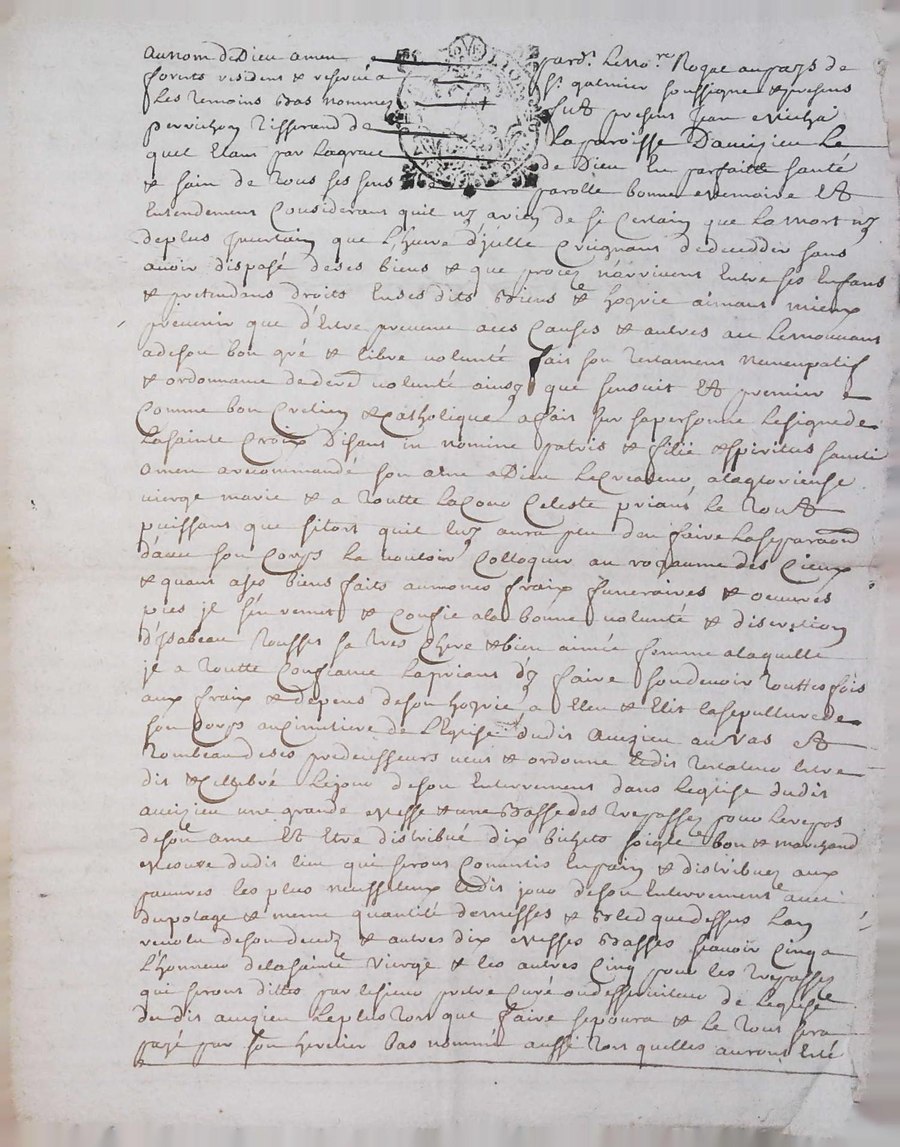 au nom de Dieu amen pard.t le no.re Royal au pays de
forests resident & reservé a St galmier soussigné & presens
les temoins bas nommez fut present Jean
perrichon tisserand de la paroisse Davizieu le
quel etant par la grace de Dieu en parfaitte santé
& sain de tous ses sens parolle bonne memoire Et
Entendement Considerant quil ny a rien de si Certain que la mort ny
de plus Incertain que lheure dycelle Creignant de deceder sans
avoir disposé de ses biens & que procez narrivent Entre ses Enfans
& pretendans droits En ses dits Biens & hoyrie aimant mieux
prevenir que d'Estre prevenu a ces Causes & autres a ce le mouvans
a de son bon gré & libre volunté fait son testament nuncupatif
& ordonnance de der.e volunté ainsy que sensuit Et premier
Comme bon Cretien & Catholique a fait sur sa personne le signe de
la sainte Croix Disant in nomine patris & filii & spiritus sancti
amen a recommandé son ame a Dieu le Createur a la glorieuse
vierge marie & a toutte la Cour Celeste priant le tout
puissant que sitost quil luy aura pleu den faire la separaon
d'avec son Corps la vouloir Colloquer au royaume des Cieux
& quant a ses biens faits aumones fraix funeraires & oeuvres
pies Il sen remet & Confie a la bonne volunté & discretion
d'Isabeau rousset sa tres Chere & bien aimée femme a laquelle
Il a toutte Confiance la priant d'y faire son devoir touttes fois
aux fraix & depens de son hoyrie a Eleu & Elit la sepulture de
son Corps au Cimetiere de l'Eglise dudit auizieu au vas Et
tombeau de ses predecesseurs veut & ordonne ledit testateur Estre
dit & Celebré le jour de son Enterrement dans leglise dudit
auizieu une grande Messe & une Basse des trepassez pour le repos
de son ame Et Estre distribué dix bichets soigle bon & marchand
Mesure dudit lieu qui seront Convertis En pain & distribuez aux
pauvres les plus necessiteux ledit jour de son Enterrement avec
du potage & meme quantité de messes & Bled que dessus Lan
revolu de son decedz & autres dix Messes Basses scavoir Cinq a
l'honneur de la sainte vierge & les autres Cinq pour les trepassez
qui seront dittes par le sieur pretre Curé ou desserviteur de leglise
du dit auizieu le plustost que faire se poura & le tout sera
payé par son heretier bas nommé aussi tost quelles auront Esté